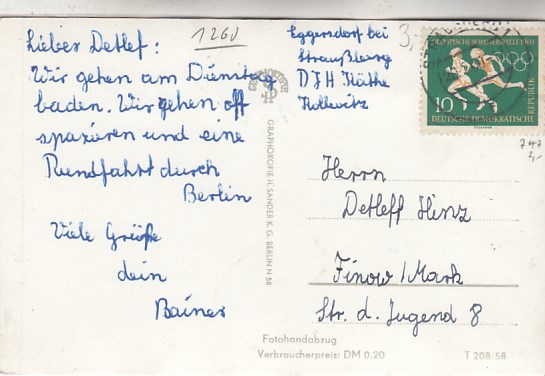 Lieber Detlef:
Wir gehen am Dienstag
baden. Wir gehen oft
spazieren und eine
Rundfahrt durch
Berlin
Viele Grüße
dein
Rainer
1260
Eggersdorf bei
Straußberg
DJH Käthe
Kollwitz
3,
OLYMPISCHE SOMMERSPIELE 1960
10
DEUTSCHE DEMOKRATISCHE
REPUBLIK
747
2,-
Herrn
Detleff Hinz
Finow/Mark
Str. d. Jugend 8
GRAPHOKOPIE H. SANDER K. G. BERLIN N 58
Fotohandabzug
Verbraucherpreis: DM 0.20
T 208/58